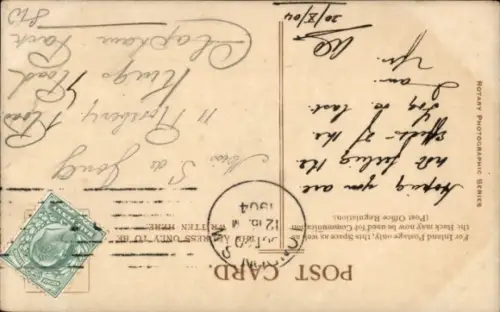 POST CARD.
For Inland Postage only, this Space as well as
the Back may now be used for Communication.
(Post Office Regulations).
THE ADDRESS ONLY TO BE
WRITTEN HERE.
ROTARY PHOTOGRAPHIC SERIES
12 15
1904
20/8/04
Hoping you are
not feeling the
effects of the
fog so last.
I am.
Yrs.
Miss
S de Jong
11 Rosbery Road
Kings Road
Clapham Park
SW